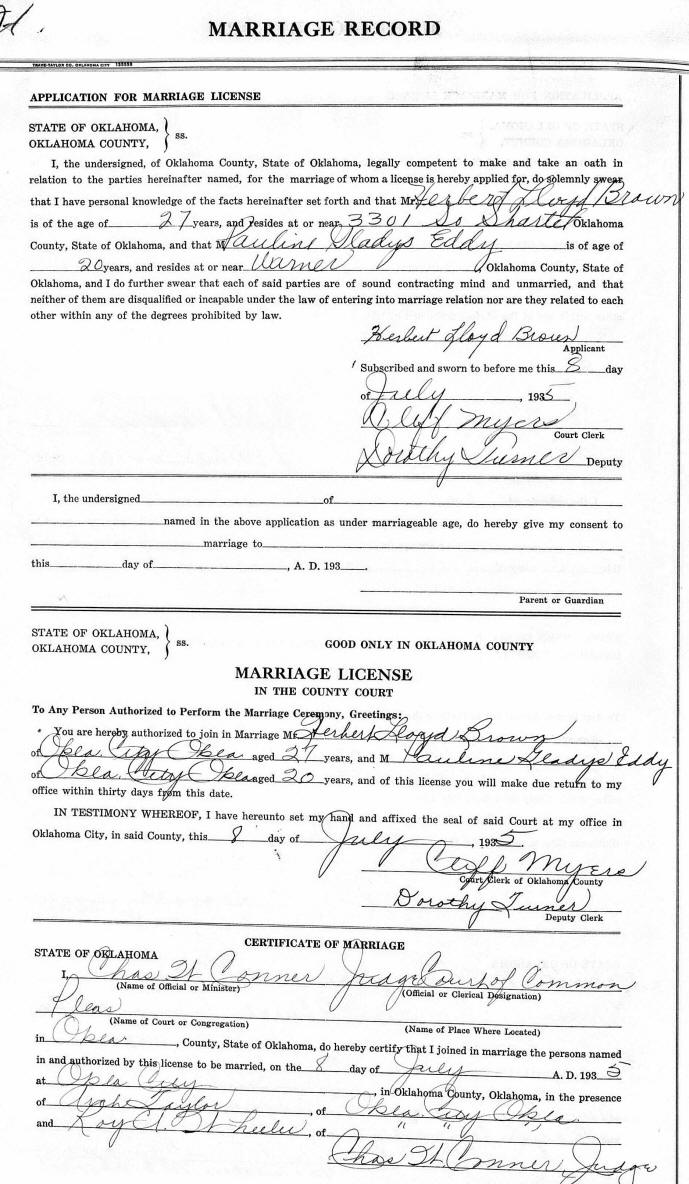 MARRIAGE RECORD
TRAVE-TAYLOR CO. OKLAHOMA CITY
APPLICATION FOR MARRIAGE LICENSE
STATE OF OKLAHOMA,
OKLAHOMA COUNTY, } ss.
I, the undersigned, of Oklahoma County, State of Oklahoma, legally competent to make and take an oath in
relation to the parties hereinafter named, for the marriage of whom a license is hereby applied for, do solemnly swear
that I have personal knowledge of the facts hereinafter set forth and that Mr. Herbert Lloyd Brown
is of the age of 27 years, and resides at or near 3301 So Shartel Oklahoma
County, State of Oklahoma, and that M Pauline Gladys Eddy is of age of
20 years, and resides at or near Warner, Oklahoma County, State of
Oklahoma, and I do further swear that each of said parties are of sound contracting mind and unmarried, and that
neither of them are disqualified or incapable under the law of entering into marriage relation nor are they related to each
other within any of the degrees prohibited by law.
Herbert Lloyd Brown
Applicant
Subscribed and sworn to before me this 8 day
of July, 1935
Cliff Myers
Court Clerk
Dorothy Turner Deputy
I, the undersigned of
named in the above application as under marriageable age, do hereby give my consent to
marriage to
this day of , A. D. 193 .
Parent or Guardian
STATE OF OKLAHOMA,
OKLAHOMA COUNTY, } ss. GOOD ONLY IN OKLAHOMA COUNTY
MARRIAGE LICENSE
IN THE COUNTY COURT
To Any Person Authorized to Perform the Marriage Ceremony, Greetings:
You are hereby authorized to join in Marriage Mr. Herbert Lloyd Brown
of Okla. City Okla aged 27 years, and M Pauline Gladys Eddy
of Okla. City Okla aged 20 years, and of this license you will make due return to my
office within thirty days from this date.
IN TESTIMONY WHEREOF, I have hereunto set my hand and affixed the seal of said Court at my office in
Oklahoma City, in said County, this 8 day of July, 1935.
Cliff Myers
Court Clerk of Oklahoma County
Dorothy Turner
Deputy Clerk
CERTIFICATE OF MARRIAGE
STATE OF OKLAHOMA
I, Chas W. Conner Judge Court of Common
(Name of Official or Minister) (Official or Clerical Designation)
Pleas
(Name of Court or Congregation) (Name of Place Where Located)
in Okla, County, State of Oklahoma, do hereby certify that I joined in marriage the persons named
in and authorized by this license to be married, on the 8 day of July A. D. 1935
at Okla City, in Oklahoma County, Oklahoma, in the presence
of Taylor, of Okla. City Okla.
and Roy A. Wheeler, of " " "
Chas W. Conner, Judge